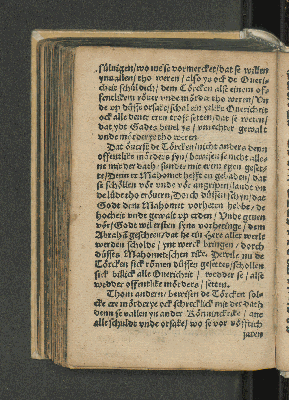 sülvigen / wo men se vormercket / dat se willen
ynuallen / tho weren / also ys ock de Oueri=
cheit schüldich / dem Törcken alse einem of=
fentlikem röuer vnde mörder tho weren / Vn
de vp düsse orsake / schal ein yslike Ouericheit
ock alle dener eren trost setten / dat se weten /
dat ydt Gades beuel ys / vnrechter gewalt
vnde mörderye tho weren.
Dat öuerst de Törcken nicht anders denn
offentlike mörders syn / bewisen se nicht alle=
ne mit der dath / sunder mit erem egen geset=
te / Denn er Mahomet hefft en gebaden / dat
se schöllen vör vnde vör angripen lande vn
de lüde tho eröuern / Dorch düssen schyn / dat
Godt dem Mahomet vorhaten hebbe / de
hocheit vnde gewalt vp erden / Vnde geuen
vör / Godt wil ersten synn vorheitinge / dem
Abraham gescheen / dat he ein here aller werlt
werden scholde / yns werck bringen / dorch
düsse Mahometschen rike. Dewile nu de
Törcken sick römen düsses gesettes / schollen
sick billick alle Ouericheit / wedder se / alse
wedder offentlike mörders / setten.
Thom andern / bewisen de Törcken sol=
cke ere mörderye ock schrecklick mit der dath /
denn se wallen yn ander Köninckrike / ane
alle schuldt vnde orsake / wo se vor vöfftich
jaren